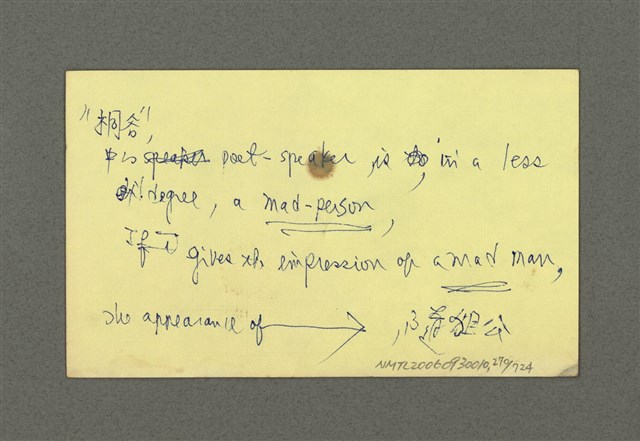 "桐谷",
中的 speaker poet-speaker, is, in a less
degree, a mad-person,
If it gives the impression of a mad man,
the appearance of → 老狙公
NMTL20060930010,270/724